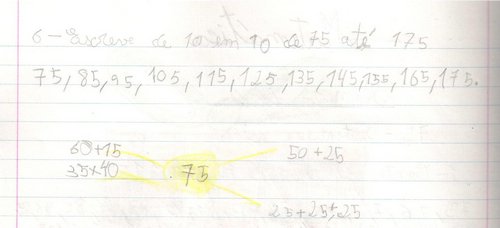 6 - Escreve de 10 em 10 de 75 até 175
75, 85, 95, 105, 115, 125, 135, 145, 155, 165, 175.
60+15
50+25
35+40
75
25+25+25